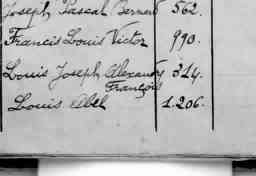 Joseph Pascal Bernard 562.
Francis Louis Victor 990.
Louis Joseph Alexandre 314.
François
Louis Abel 1.206.